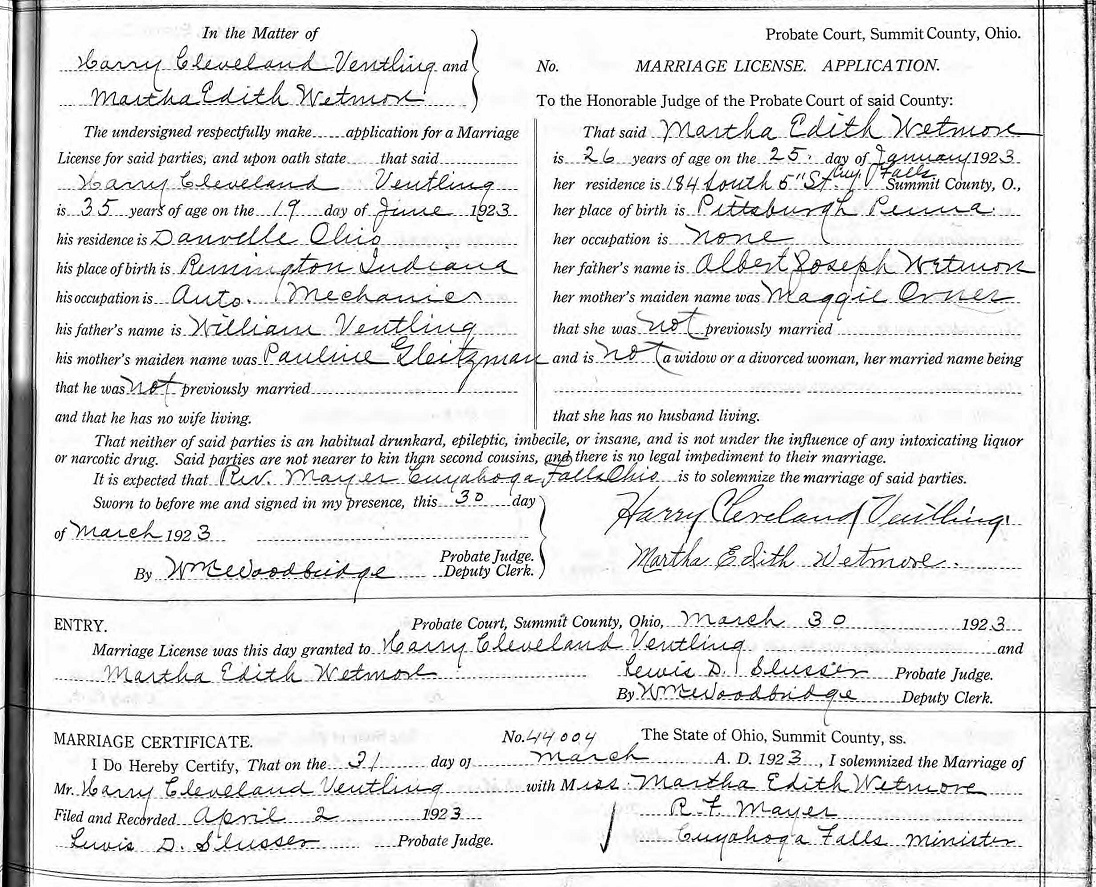 In the Matter of
Harry Cleveland Ventling and
Martha Edith Wetmore
Probate Court, Summit County, Ohio.
No. MARRIAGE LICENSE. APPLICATION.
To the Honorable Judge of the Probate Court of said County:
The undersigned respectfully make application for a Marriage
License for said parties, and upon oath state that said
Harry Cleveland Ventling
is 35 years of age on the 19 day of June 1923
his residence is Danville Ohio
his place of birth is Remington Indiana
his occupation is Auto. Mechanic
his father's name is William Ventling
his mother's maiden name was Pauline Gleitzman
that he was not previously married
and that he has no wife living.
That said Martha Edith Wetmore
is 26 years of age on the 25 day of January 1923
her residence is 184 South 5" St. Cuy. Falls Summit County, O.,
her place of birth is Pittsburgh Penna.
her occupation is none
her father's name is Albert Joseph Wetmore
her mother's maiden name was Maggie
that she was not previously married
and is not a widow or a divorced woman, her married name being
that she has no husband living.
That neither of said parties is an habitual drunkard, epileptic, imbecile, or insane, and is not under the influence of any intoxicating liquor
or narcotic drug. Said parties are not nearer to kin than second cousins, and there is no legal impediment to their marriage.
It is expected that Rev. Mayer Cuyahoga Falls Ohio is to solemnize the marriage of said parties.
Sworn to before me and signed in my presence, this 30 day
of March 1923
Probate Judge.
By Wm E Woodbridge Deputy Clerk.
Harry Cleveland Ventling
Martha Edith Wetmore.
ENTRY. Probate Court, Summit County, Ohio, March 30 1923
Marriage License was this day granted to Harry Cleveland Ventling and
Martha Edith Wetmore Lewis D. Slusser Probate Judge.
By Wm E Woodbridge Deputy Clerk.
MARRIAGE CERTIFICATE. No. 44004 The State of Ohio, Summit County, ss.
I Do Hereby Certify, That on the 31 day of March A. D. 1923, I solemnized the Marriage of
Mr. Harry Cleveland Ventling with Miss Martha Edith Wetmore
Filed and Recorded April 2 1923 R. F. Mayer
Lewis D. Slusser Probate Judge. Cuyahoga Falls Minister